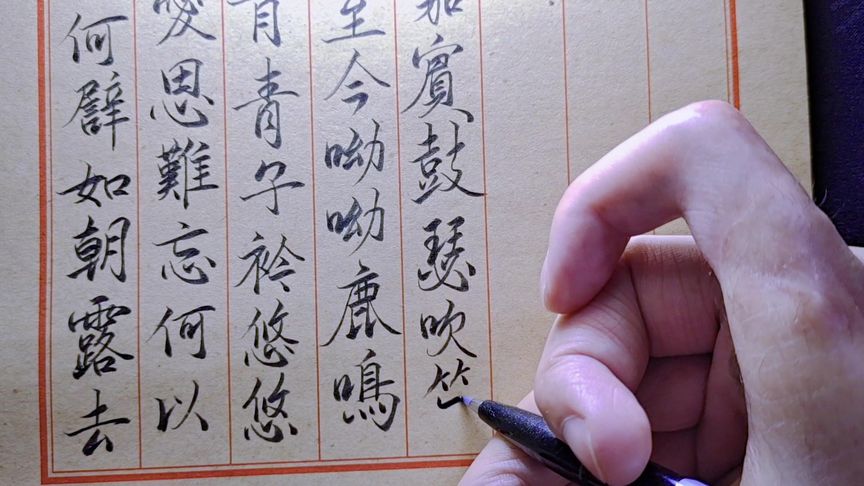 何譬如朝露去
憂思難忘何以
青青子衿悠悠
至今呦呦鹿鳴
嘉賓鼓瑟吹